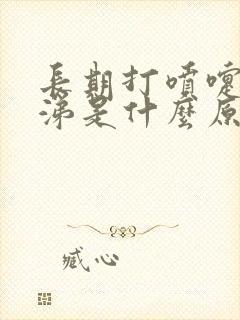 長期打噴嚏
涕是什麼原
臧心